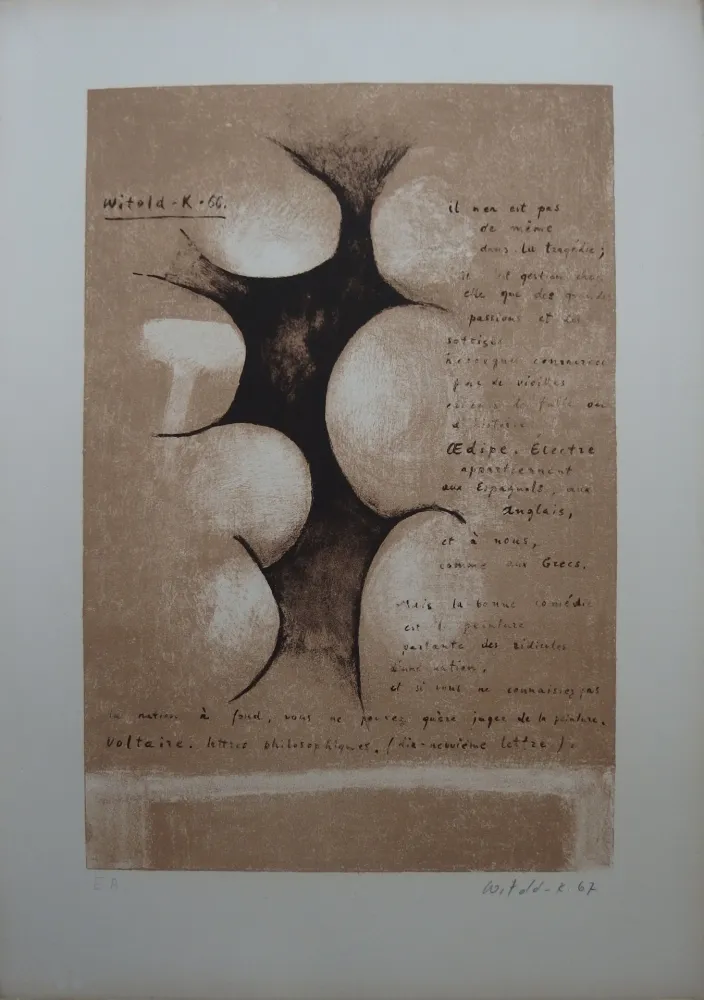 Witold-K·66.
il n'en est pas
de même
dans la tragédie;
il est gestion chez
elle que des grandes
passions et des
sottises
consacrées
par de vieilles
de fable ou
d'histoire
Œdipe. Électre
appartiennent
aux Espagnols, aux
Anglais,
et à nous,
comme aux Grecs.
Mais la bonne comédie
est peinture
parlante des ridicules
d'une nation,
et si vous ne connaissez pas
la nation à fond, vous ne pouvez guère juger de la peinture.
Voltaire. lettres philosophiques. (dix-neuvième lettre).
E A
Witold-K. 67